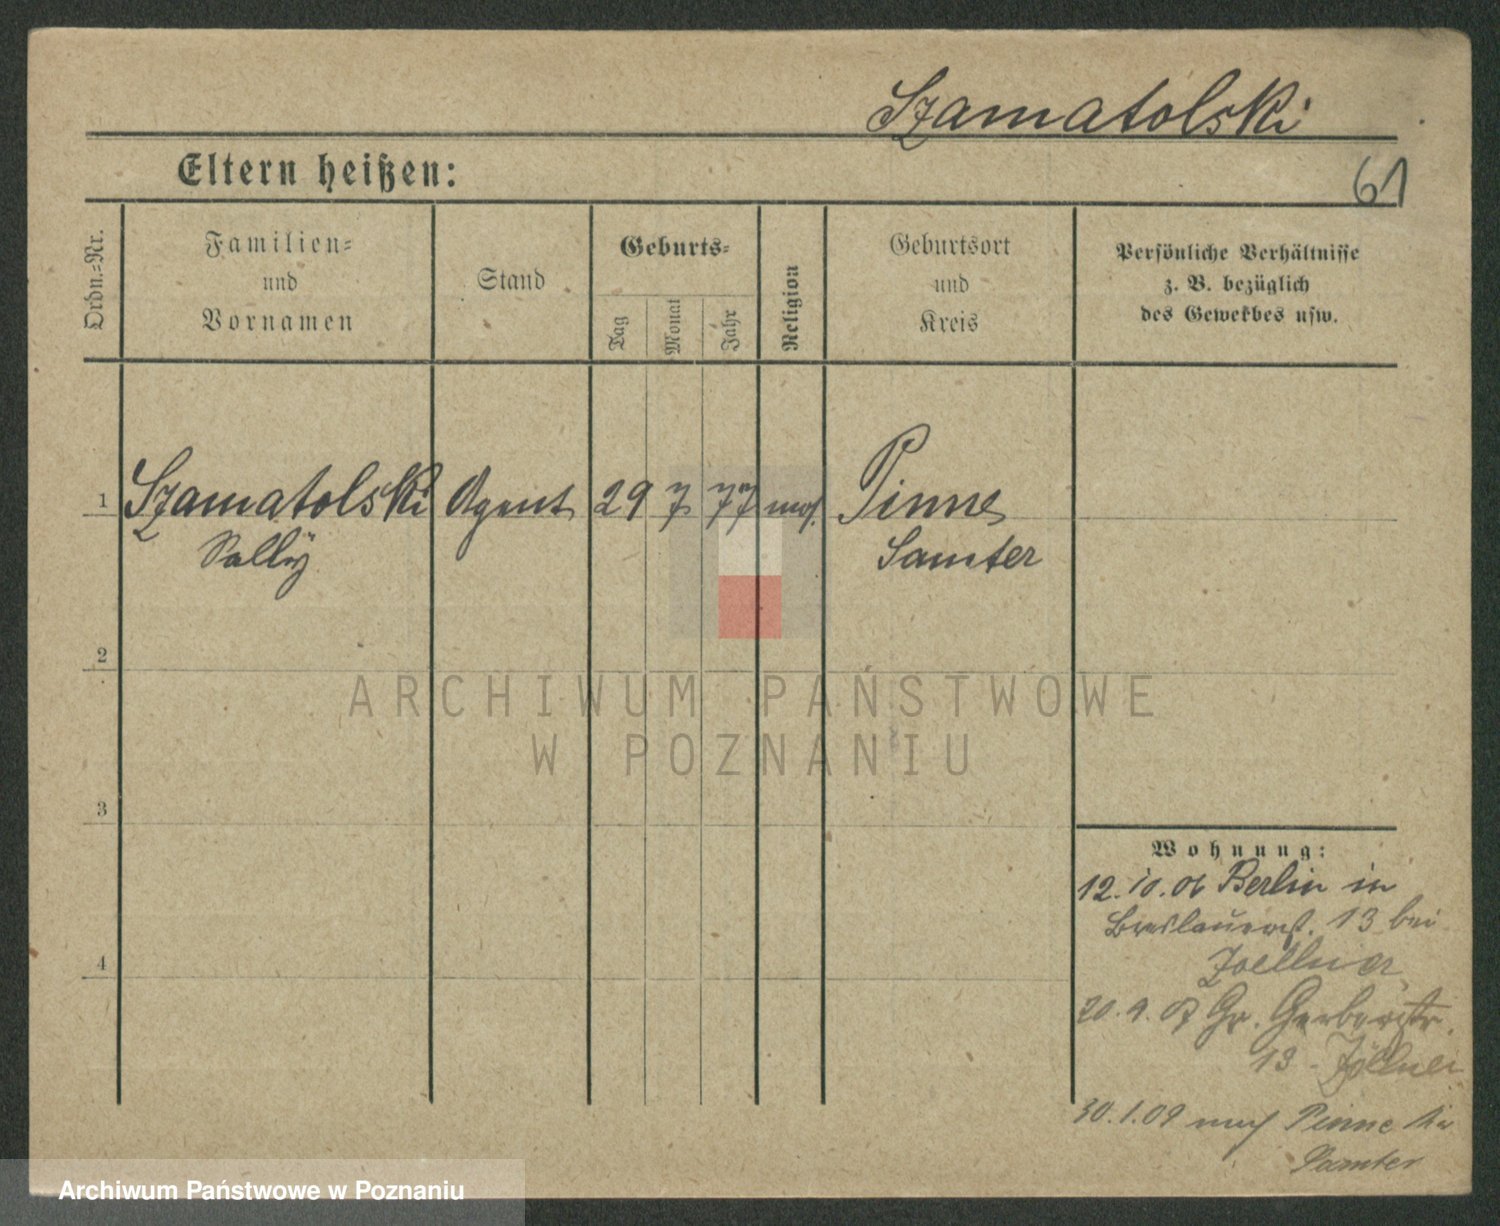 Szamatolski
61
Eltern heißen:
Ordn.-Nr.
Familien-
und
Vornamen
Stand
Geburts-
Tag
Monat
Jahr
Religion
Geburtsort
und
Kreis
Persönliche Verhältnisse
z. B. bezüglich
des Gewerbes usw.
1 Szamatolski Agent 29 7 77 mos. Pinne
Sally Samter
2
ARCHIWUM PAŃSTWOWE
W POZNANIU
3
4
Wohnung:
12.10.06 Berlin in
Breslauerst. 13 bei
Zoellner
20.9.07 Gr. Gerberstr.
13 - Zöllner
30.1.09 nach Pinne
Samter
Archiwum Państwowe w Poznaniu